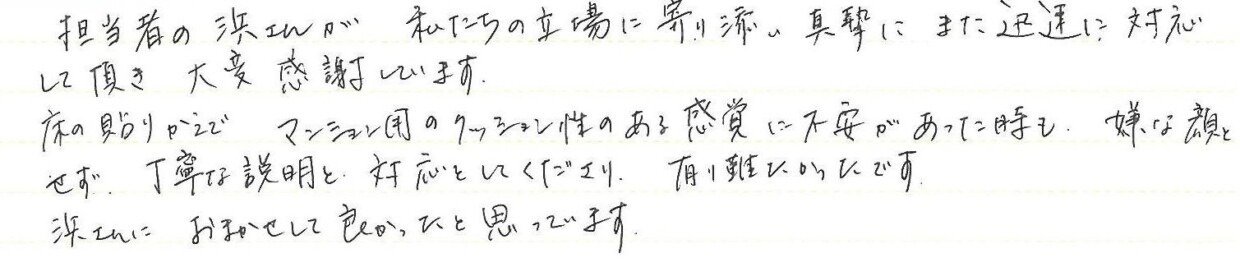 担当者の浜さんが 私たちの立場に寄り添い 真摯に また迅速に対応
して頂き 大変感謝しています。
床の貼りかえで マンション用のクッション性のある感覚に不安があった時も、嫌な顔を
せず、丁寧な説明と、対応をしてくださり、有り難たかったです。
浜さんに おまかせして良かったと思っています。